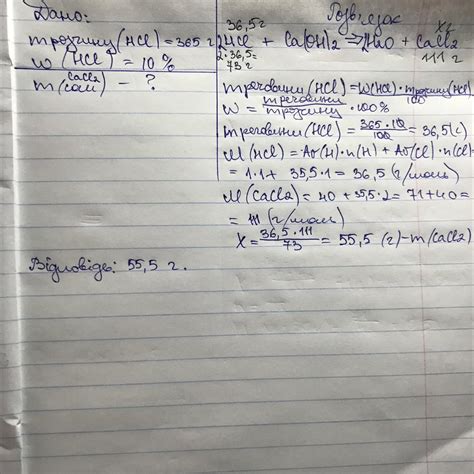 Дано:
m розчину (HCl) = 365 г
W (HCl) = 10 %
m (солі) CaCl2 – ?
Розв'язок
36,5 г X г
2HCl + Ca(OH)2 ⇒ 2H2O + CaCl2
2·36,5= 111 г
73 г
m речовини (HCl) = W(HCl) · m розчину (HCl) / 100
W = m речовини / m розчину · 100%
m речовини (HCl) = 365 · 10 / 100 = 36,5 (г)
M (HCl) = Ar(H) · n(H) + Ar(Cl) · n(Cl) =
= 1·1 + 35,5·1 = 36,5 (г/моль)
M (CaCl2) = 40 + 35,5 · 2 = 71 + 40 =
= 111 (г/моль)
X = 36,5 · 111 / 73 = 55,5 (г) – m (CaCl2)
Відповідь: 55,5 г.